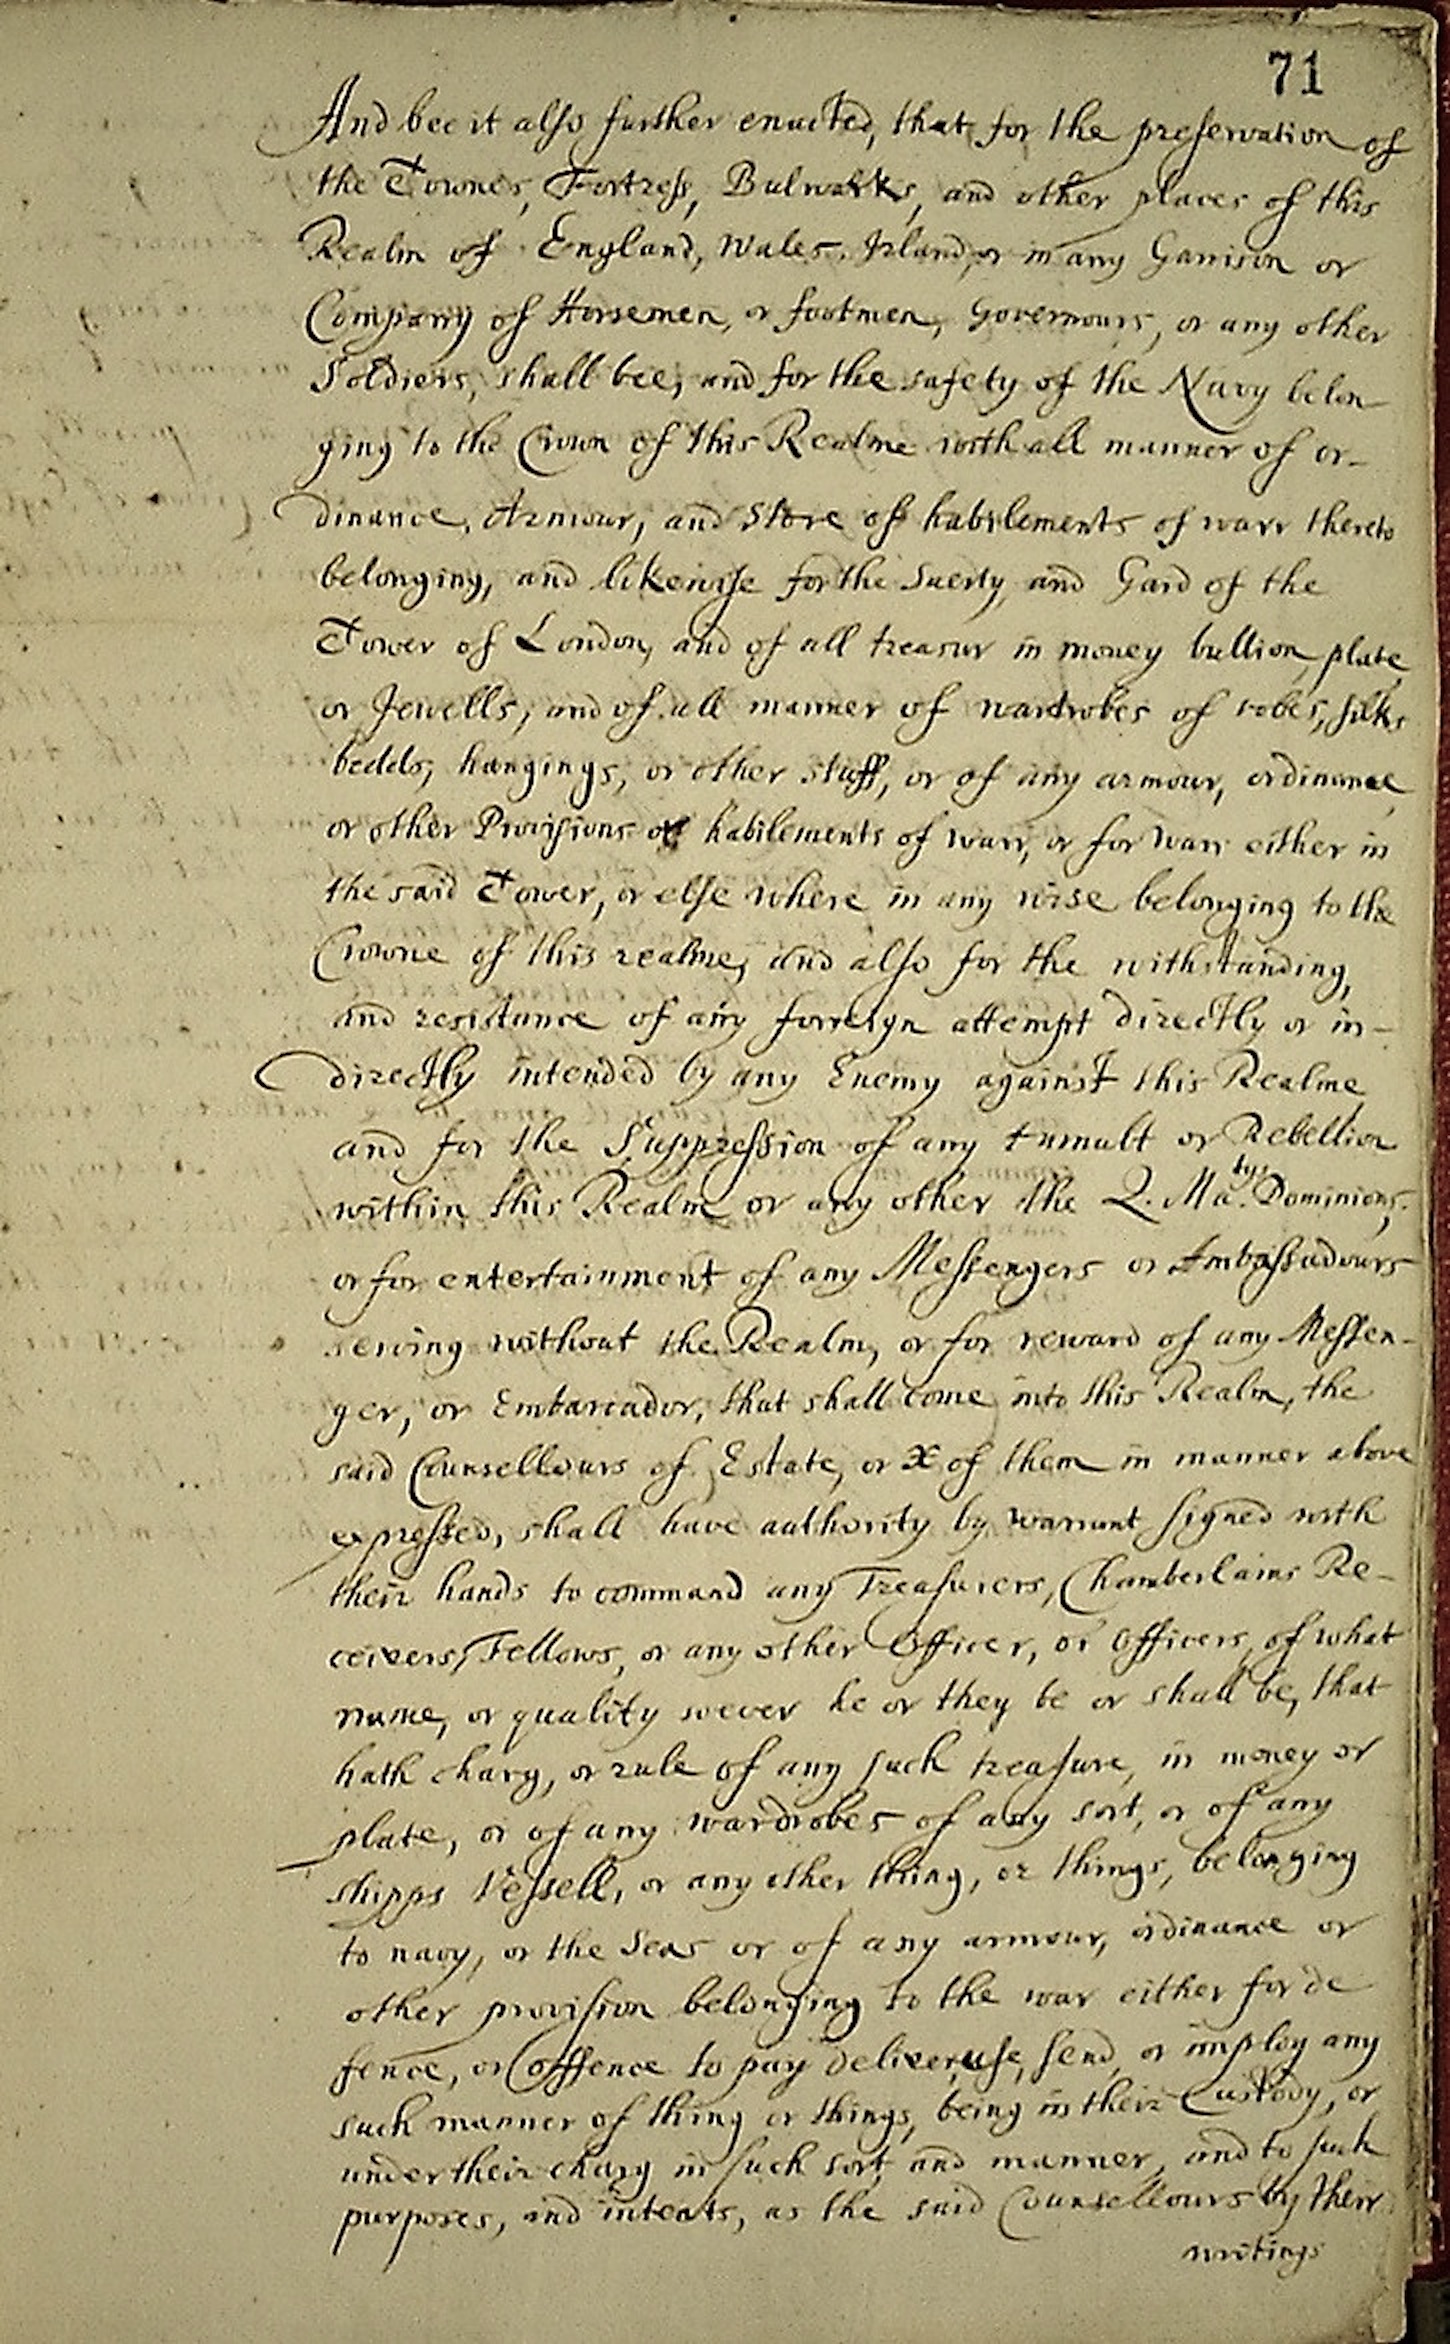 71
And bee it also further enacted, that for the preservation of
the Townes, Fortress, Bulwarks, and other places of this
Realm of England, Wales, Irland, or in any Garrison or
Company of Horsemen, or footmen, Governours, or any other
Soldiers, shall bee, and for the safety of the Navy belon
ging to the Crown of this Realme with all manner of or-
dinance, Armour, and Store of habilements of warr thereto
belonging, and likewise for the Suerty and Gard of the
Tower of London, and of all treasur in money bullion, plate
or Jewells, and of all manner of wardrobes of robes, silks
bedds, hangings, or other stuff, or of any armour, ordinance
or other Provisions or habilements of warr, or for warr either in
the said Tower, or else where in any wise belonging to the
Crowne of this realme, and also for the withstanding,
and resistance of any forreign attempt directly or in-
directly intended by any Enemy against this Realme
and for the Suppression of any tumult or Rebellion
within this Realm or any other the Q. Ma.tys Dominions,
or for entertainment of any Messengers or Ambassadours
serving without the Realm, or for reward of any Messen-
ger, or Embassador, that shall come into this Realm, the
said Counsellours of Estate, or X of them in manner above
expressed, shall have authority by warrant signed with
their hands to command any Treasurers, Chamberlains Re-
ceivers, Fellows, or any other Officer, or Officers, of what
name, or quality soever he or they be or shall be, that
hath charg, or rule of any such treasure, in money or
plate, or of any wardrobes of any sort, or of any
shipps Vessell, or any other thing, or things, belonging
to navy, or the Seas or of any armour, ordinance or
other provision belonging to the war either for de
fence, or offence to pay deliver, use, send, or imploy any
such manner of thing or things, being in their Custody, or
under their charg in such sort, and manner, and to such
purposes, and intents, as the said Counsellours by their
writings